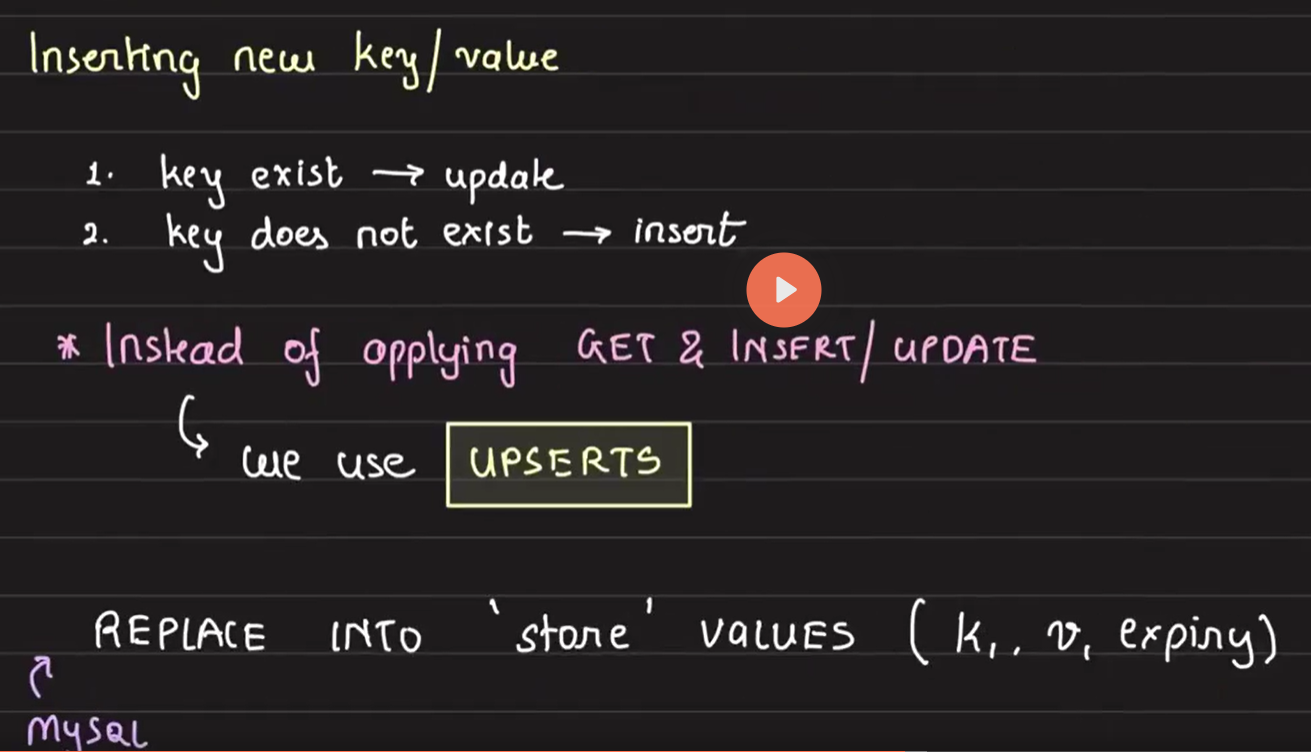 Inserting new key/value
1. key exist → update
2. key does not exist → insert
* Instead of applying GET & INSERT/UPDATE
we use UPSERTS
REPLACE INTO 'store' VALUES (k₁, v₁ expiry)
MySQL